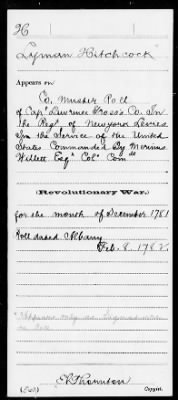 H
Lyman Hitchcock
Appears on
Co. Muster Roll
of Capt Lawrence Gross's Co. In
the Regt of New York Levies
In the Service of the United
States Commanded By Marinus
Willett Esqr Col. Comdt
(Revolutionary War.)
for the month of December 1781.
Roll dated Albany
Feb. 8. 1782.
Appears only as
E. Thornton
Copyist.